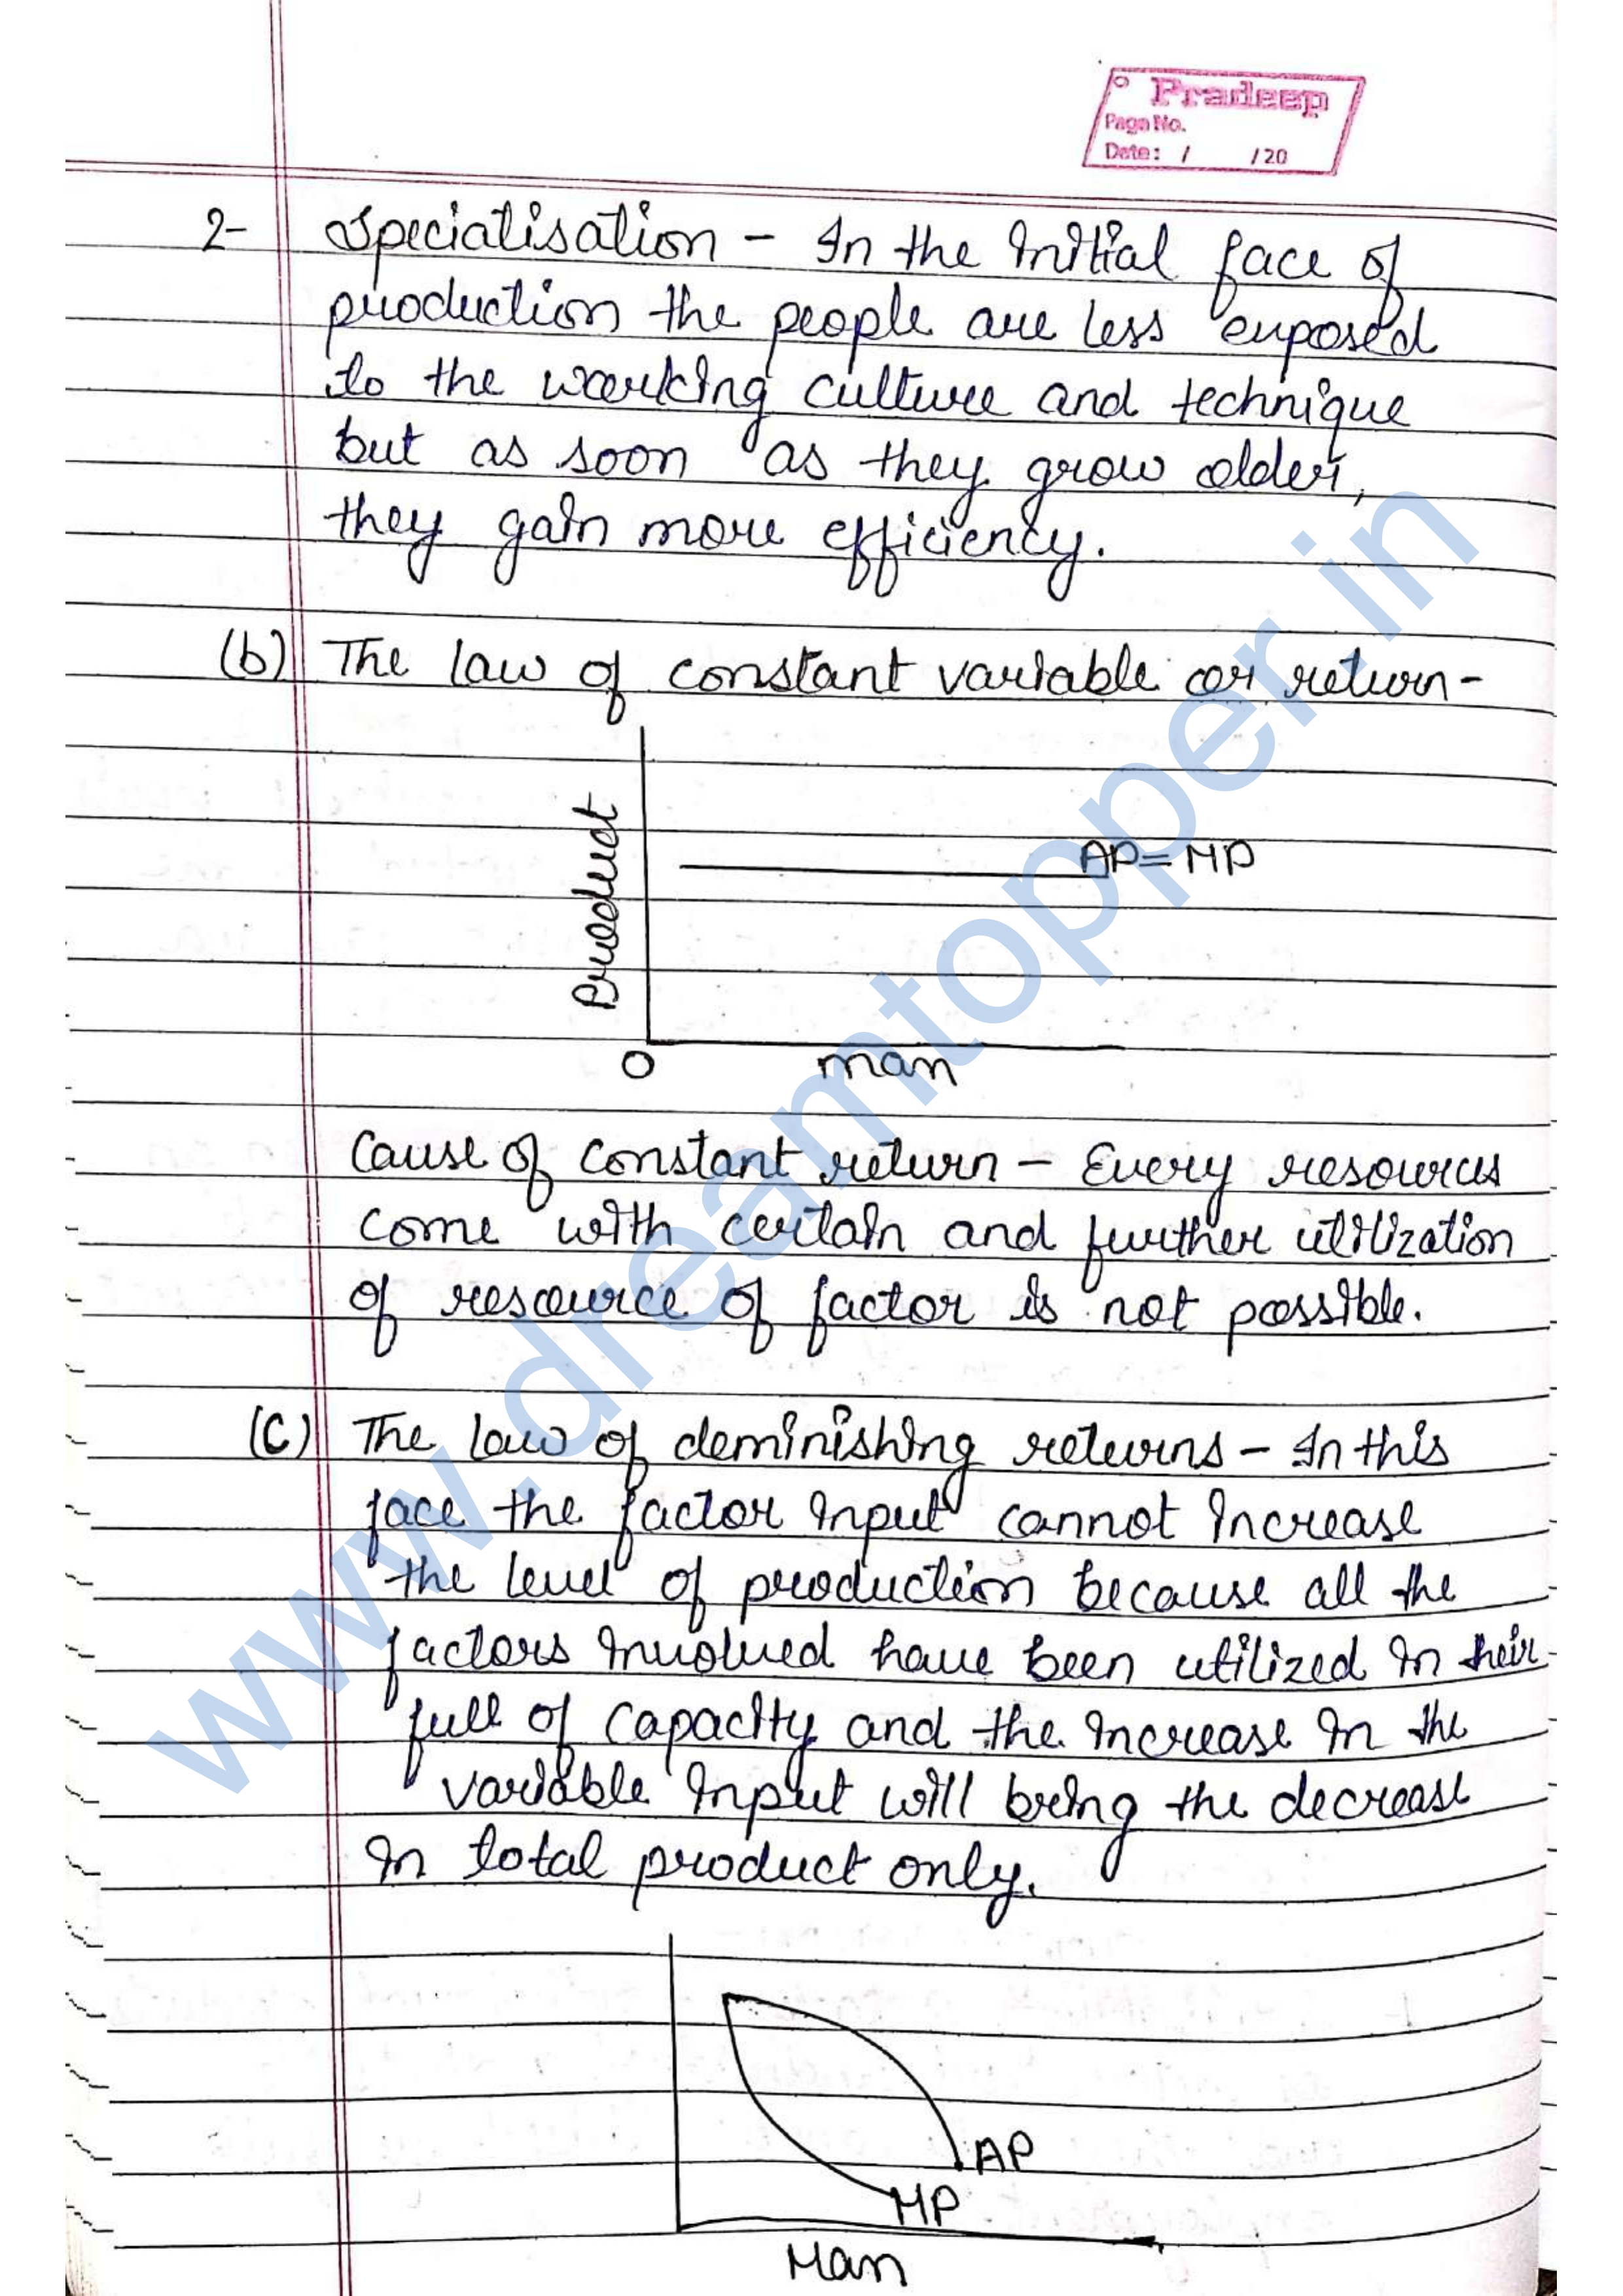 Pradeep
Page No.
Date: / /20
2- Specialisation - In the Initial face of
production the people are less exposed
to the working culture and technique
but as soon as they grow older,
they gain more efficiency.
(b) The law of constant variable or return-
Product
AP=MP
O man
Cause of constant return - Every resources
come with certain and further utilization
of resource of factor is not possible.
(C) The law of deminishing returns - In this
face the factor Input cannot Increase
the level of production because all the
factors Involved have been utilized In their
full of capacity and the Increase In the
variable Input will bring the decrease
In total product only.
AP
MP
Man
www.dreamtopper.in